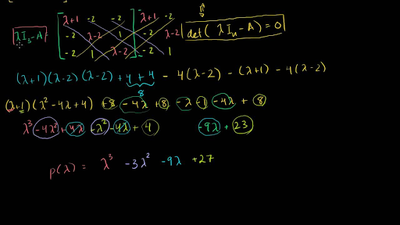 |λI₃-A| [λ+1 -2 -2 | λ+1 -2 det(λIₙ-A) = 0
-2 λ-2 1 -2 λ-2
-2 1 λ-2] -2 1
(λ+1)(λ-2)(λ-2) + 4 + 4 - 4(λ-2) - (λ+1) - 4(λ-2)
8
(λ+1)(λ² - 4λ + 4) + 8 - 4λ + 8 - λ - 1 - 4λ + 8
λ³ - 4λ² + 4λ + λ² - 4λ + 4 - 9λ + 23
p(λ) = λ³ - 3λ² - 9λ + 27